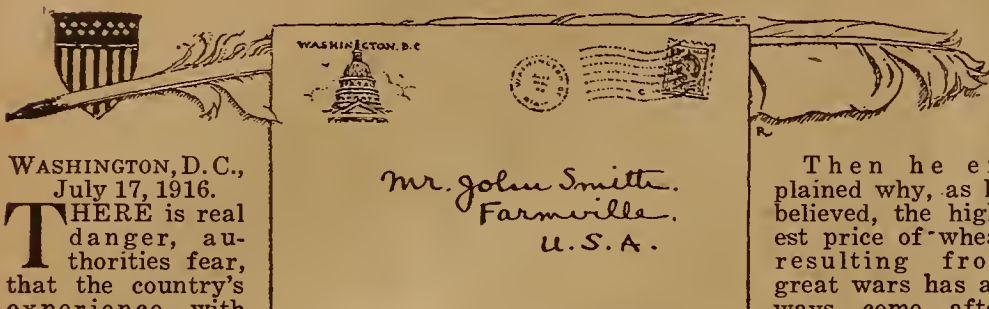 WASHINGTON, D.C
WASHINGTON
Mr. John Smith.
Farmville.
U.S.A.
WASHINGTON, D. C.,
July 17, 1916.
THERE is real
danger, au-
thorities fear,
that the country's
experience with
Then he ex
plained why, as
believed, the high
est price of wheat
resulting from
great wars has al
ways come after
R